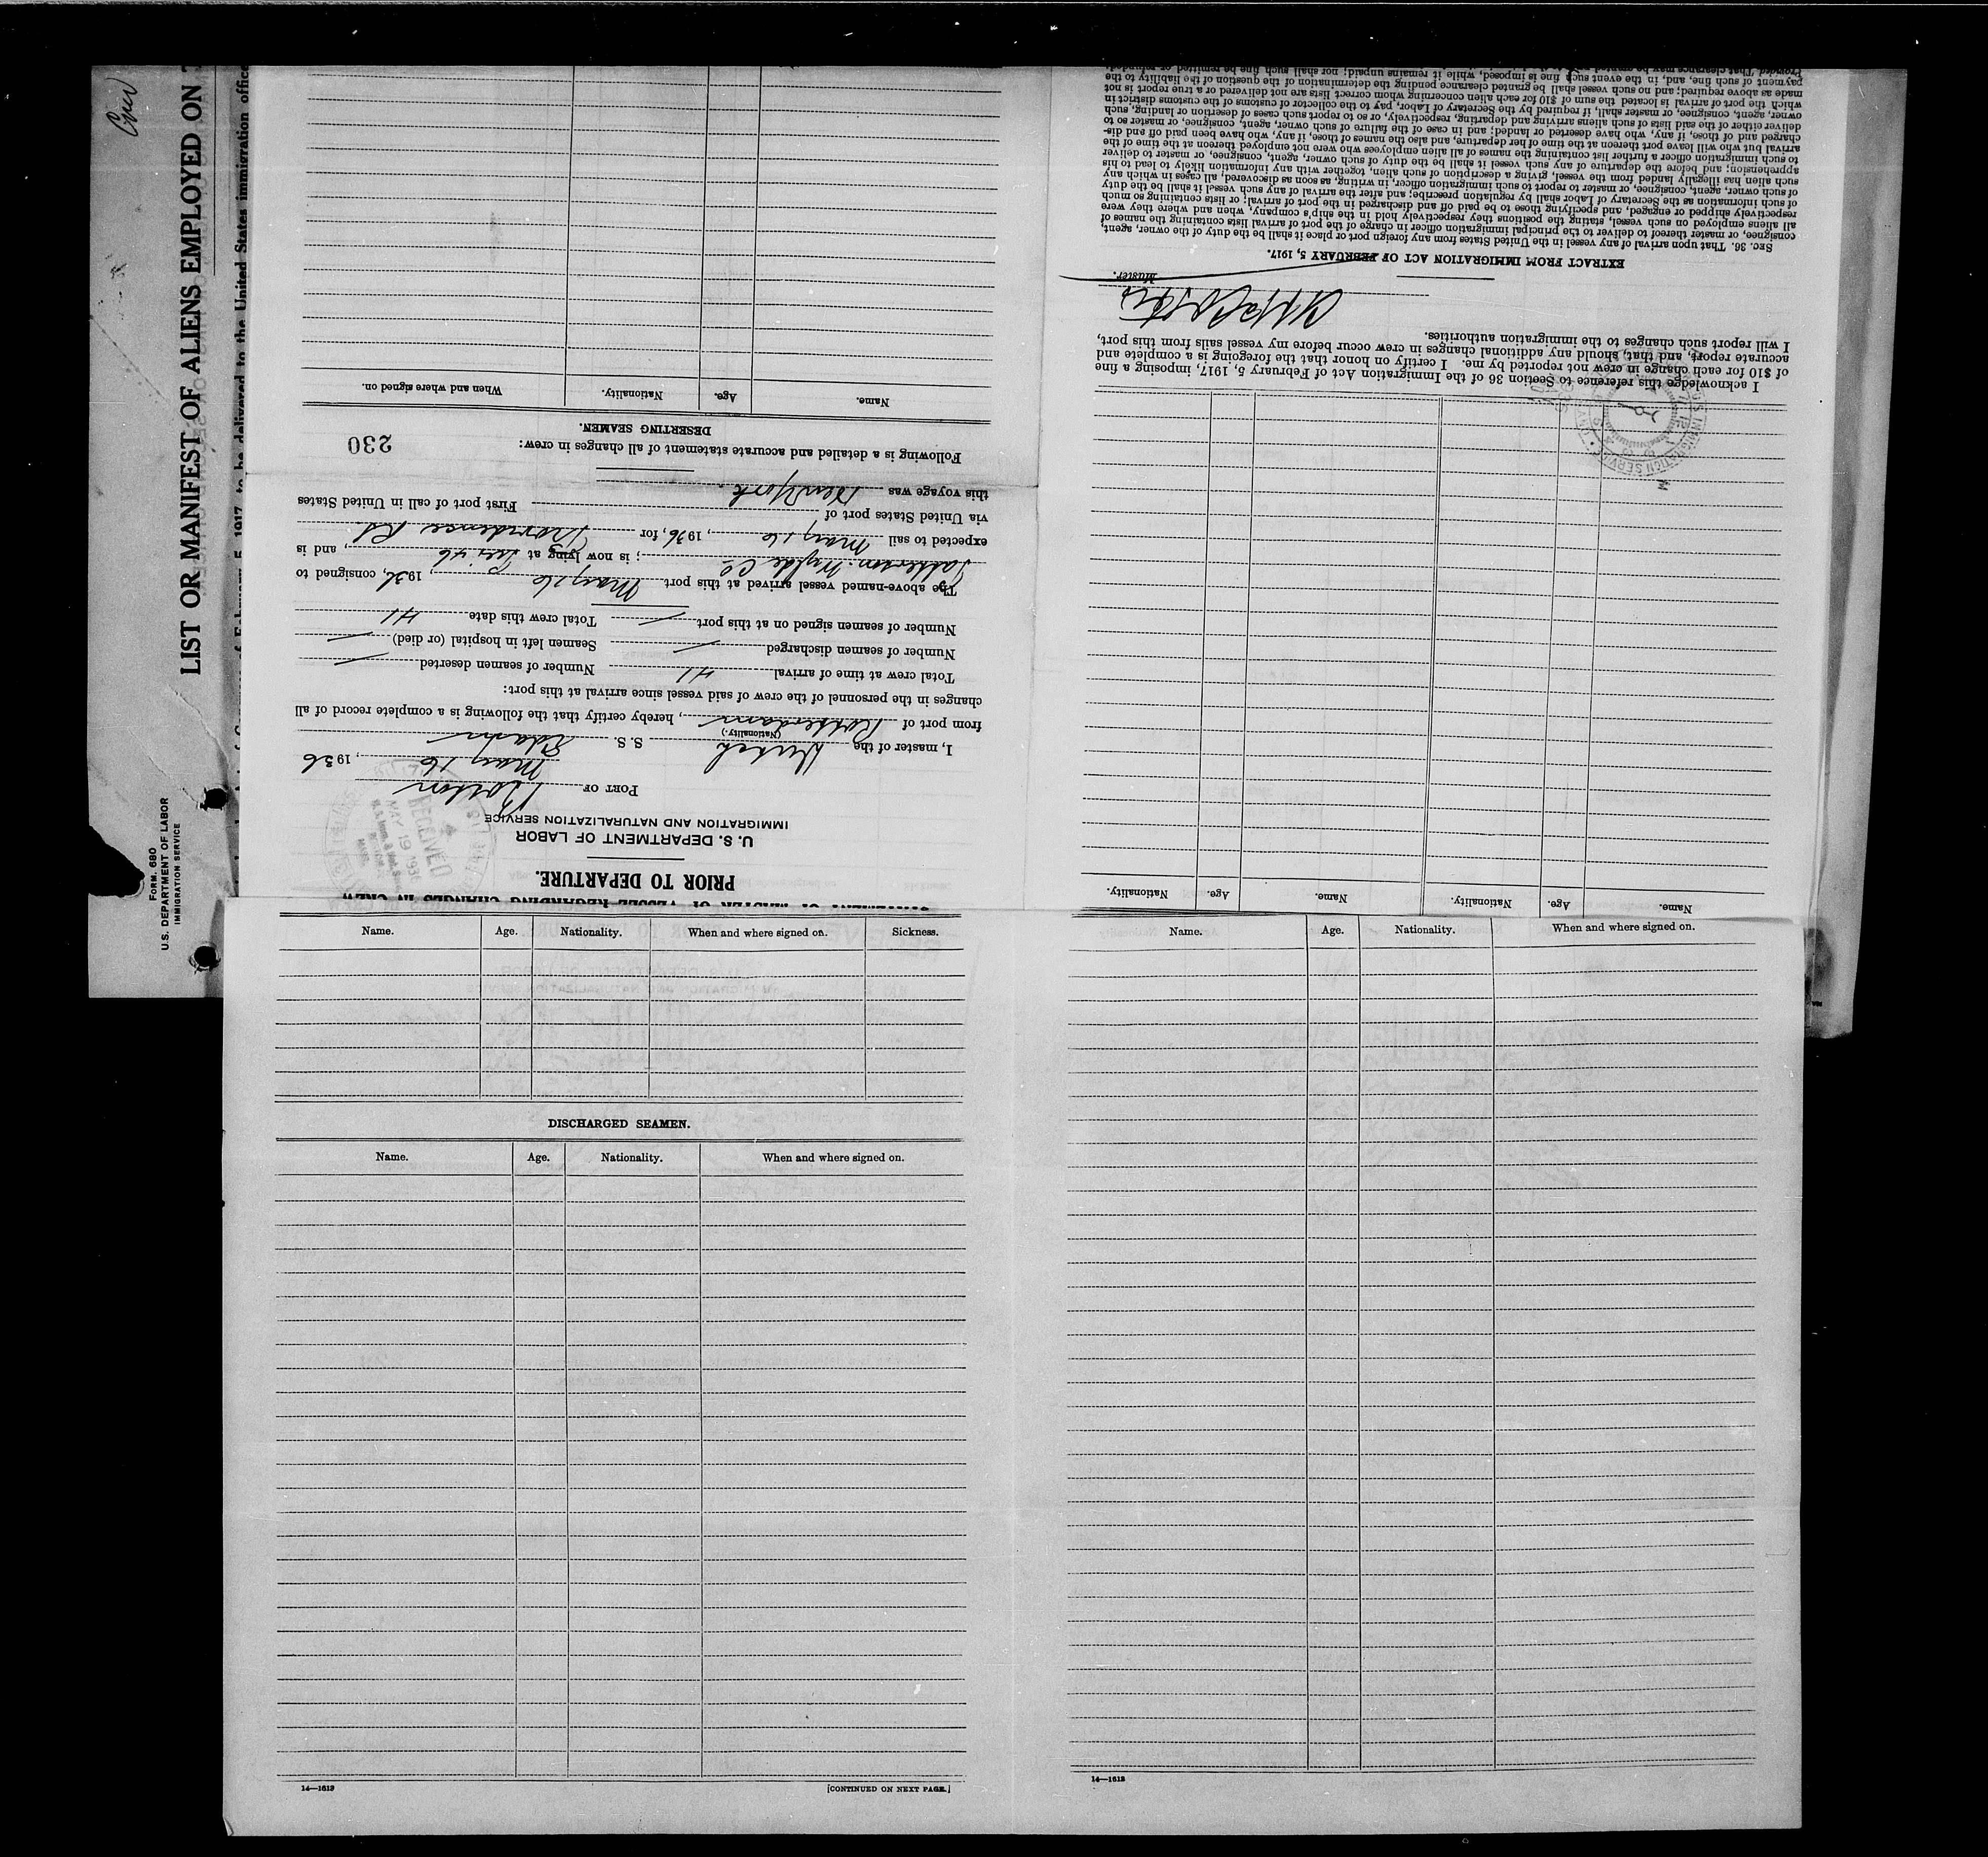 Crew
LIST OR MANIFEST OF ALIENS EMPLOYED ON
FORM 680
U.S. DEPARTMENT OF LABOR
IMMIGRATION SERVICE
of February 5, 1917, to be delivered to the United States immigration office
STATEMENT OF MASTER OF VESSEL REGARDING CHANGES IN CREW
PRIOR TO DEPARTURE.
U. S. DEPARTMENT OF LABOR
IMMIGRATION AND NATURALIZATION SERVICE
RECEIVED
MAY 19 193
PORT OF Boston
May 16, 1936
I, master of the Dutch S. S. Edam
(Nationality.)
from port of Rotterdam, hereby certify that the following is a complete record of all
changes in the personnel of the crew of said vessel since arrival at this port:
Total crew at time of arrival 41 Number of seamen deserted —
Number of seamen discharged — Seamen left in hospital (or died) —
Number of seamen signed on at this port — Total crew this date 41
The above-named vessel arrived at this port May 16, 1936, consigned to
Patterson Wylde Co; is now lying at Pier 46, and is
expected to sail May 16, 1936, for Providence RI
via United States port of First port of call in United States
this voyage was New York.
Following is a detailed and accurate statement of all changes in crew:
230
DESERTING SEAMEN.
Name. Age. Nationality. When and where signed on.
Name. Age. Nationality. Name. Age. Nationality.
I acknowledge this reference to Section 36 of the Immigration Act of February 5, 1917, imposing a fine
of $10 for each change in crew not reported by me. I certify on honor that the foregoing is a complete and
accurate report, and that, should any additional changes in crew occur before my vessel sails from this port,
I will report such changes to the immigration authorities.
Master.
U.S. IMMIGRATION SERVICE
EXTRACT FROM IMMIGRATION ACT OF FEBRUARY 5, 1917.
SEC. 36. That upon arrival of any vessel in the United States from any foreign port or place it shall be the duty of the owner, agent,
consignee, or master thereof to deliver to the principal immigration officer in charge of the port of arrival lists containing the names of
all aliens employed on such vessel, stating the positions they respectively hold in the ship's company, when and where they were
respectively shipped or engaged, and specifying those to be paid off and discharged in the port of arrival; or lists containing so much
of such information as the Secretary of Labor shall by regulation prescribe; and after the arrival of any such vessel it shall be the duty
of such owner, agent, consignee, or master to report to such immigration officer, in writing, as soon as discovered, all cases in which any
such alien has illegally landed from the vessel, giving a description of such alien, together with any information likely to lead to his
apprehension; and before the departure of any such vessel it shall be the duty of such owner, agent, consignee, or master to deliver
to such immigration officer a further list containing the names of all alien employees who were not employed thereon at the time of the
arrival but who will leave port thereon at the time of her departure, and also the names of those, if any, who have been paid off and dis-
charged and of those, if any, who have deserted or landed; and in case of the failure of such owner, agent, consignee, or master so to
deliver either of the said lists of such aliens arriving and departing, respectively, or so to report such cases of desertion or landing, such
owner, agent, consignee, or master shall, if required by the Secretary of Labor, pay to the collector of customs of the customs district in
which the port of arrival is located the sum of $10 for each alien concerning whom correct lists are not delivered or a true report is not
made as above required; and no such vessel shall be granted clearance pending the determination of the question of the liability to the
payment of such fine, and, in the event such fine is imposed, while it remains unpaid; nor shall such fine be remitted or refunded:
Provided, That clearance may be granted
Name. Age. Nationality. When and where signed on. Sickness.
DISCHARGED SEAMEN.
Name. Age. Nationality. When and where signed on.
14—1613
[CONTINUED ON NEXT PAGE.]
Name. Age. Nationality. When and where signed on.
14—1613